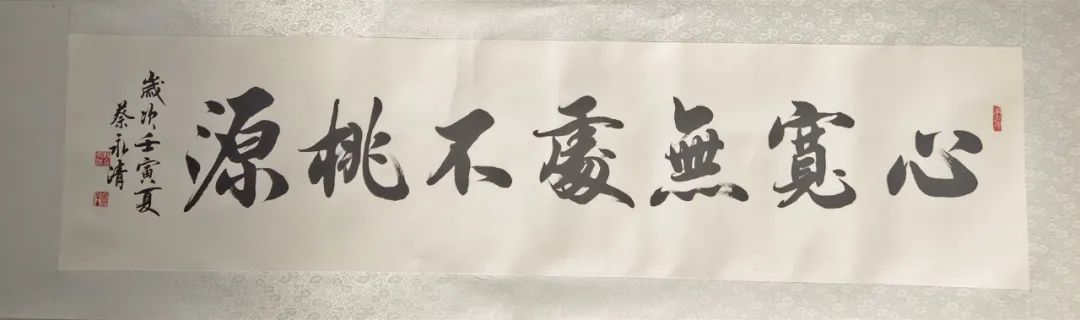 心寬無處不桃源
歲次壬寅夏
蔡永清